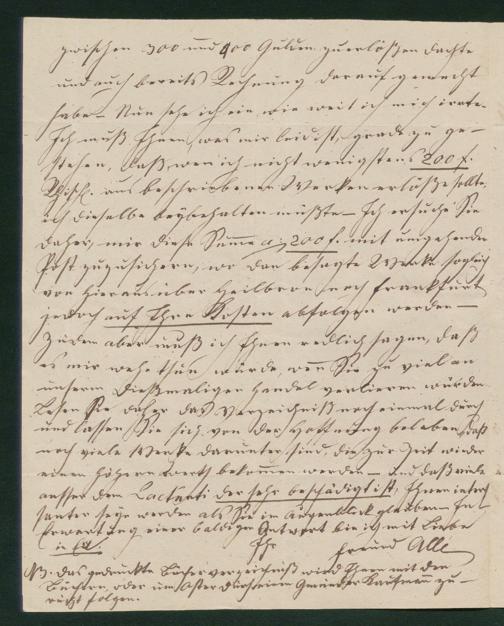 zwischen 300 und 400 Gulden zu erlößen dachte
und auch bereits Rechnung darauf gemacht
habe – Nun sehe ich ein, wie weit ich mich irrte.
Ich muß Ihnen, was mir leid ist, grade zu ge-
stehen, daß, wen ich nicht wenigstens 200 f.
aus beschriebenen Werken erlößen sollte,
ich dieselbe beybehalten müßte – Ich ersuche Sie
daher, mir diese Summe a 200 f. mit umgehender
Post zuzusichern, wo dan besagte Werke sogleich
von hier aus über Heilbron nach Frankfurt
jedoch auf Ihre Kosten abfolgen werden –
Zudem aber muß ich Ihnen redlich sagen, daß
es mir wehe thun würde, wen Sie zu viel an
unserm dießmaligen Handel verlieren würden
Lesen Sie daher das Verzeichniß noch einmal durch
und lassen Sie sich von der Hoffnung beleben, daß
noch viele Werke darunter sind, die zur Zeit wieder
einen höhern Werth bekommen werden – und daß viele
ausser dem Lactanti der sehr beschädigt ist, Ihnen interes-
santer seyn werden als Sie im Augenblick glauben – In
Erwartung einer baldigen Antwort bin ich mit Liebe
Ihr Freund Alle
NB. das gedruckte Bücherverzeichniß wird Ihnen mit den
Büchern, oder im Gmünder Kaufmann zu-
rück folgen.